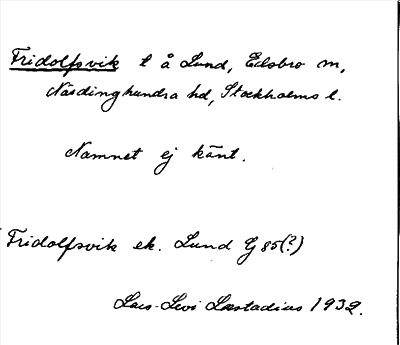 Fridolfsvik t å Lund, Edsbro sn,
Närdinghundra hd, Stockholms l.
Namnet ej känt.
Fridolfsvik ek. Lund G 85(?)
Lars-Levi Læstadius 1932.